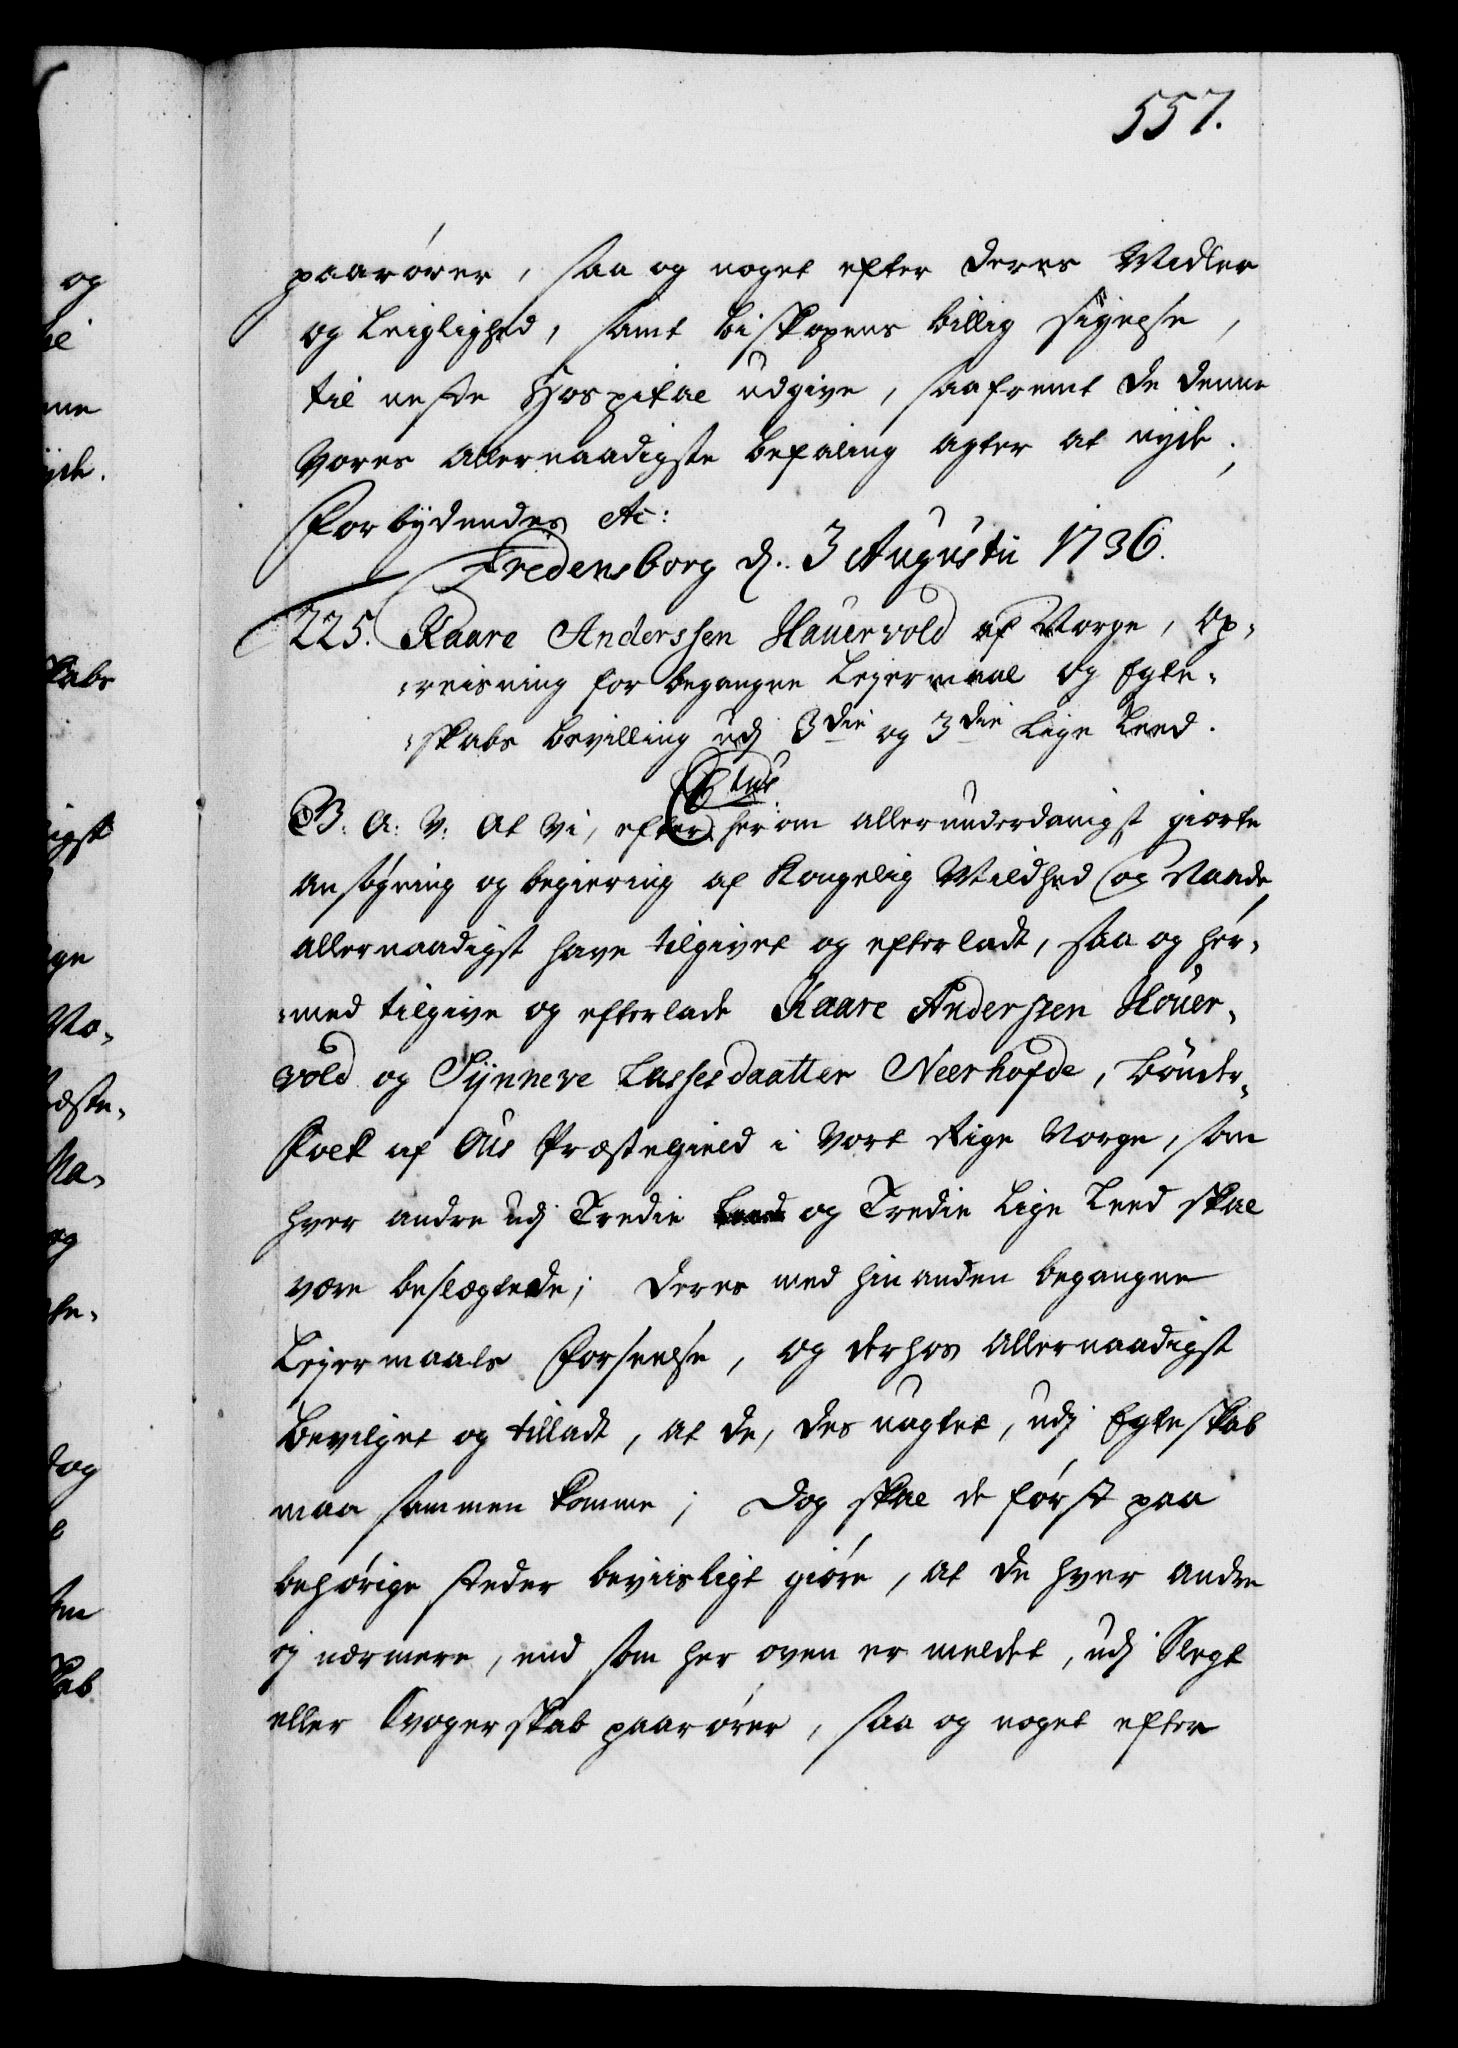 557.
paarører, saa og noget efter deres Midler
og Leiglighed, samt biskopens billig sigelse,
til neste Hospital udgive, saafremt de denne
Vores Allernaadigste befaling agter at nyde;
Forbydendes &c:
Fredensborg d. 3 Augustii 1736.
225. Kaare Anderssen Hauervold af Norge, Op-
-reisning for begangne Lejermaal og Egte-
-skabs bevilling udj 3die og 3die Lige Leed.
Ctus
G. A: V: At Vi, efter herom allerunderdanigst giorte
ansøgning og begiering af Kongelig Mildhed og Naade,
allernaadigst have tilgivet og efterladt, saa og her-
-med tilgive og efterlade Kaare Anderssen Houer-
vold og Synneve Lassesdaatter Neerhofde, bønder-
Folk af Ous Præstegield i Vort Rige Norge, som
hver andre udj Tredie og Tredie Lige Leed skal
være beslægtede; deres med hinanden begangne
Lejermaals Forseelse, og derhos allernaadigst
bevilget og tilladt, at de, des uagtet, udj Egteskab
maa sammen komme; Dog skal de først paa
behørige steder beviisligt giøre, at de hver andre
ej nærmere, end som her oven er meldet, udj Slegt
eller Svogerskab paarører, saa og noget efter
og
ne
yde.
skabs
ligst
ge
No-
æste-
Ma-
og
te-
dog
om
skab